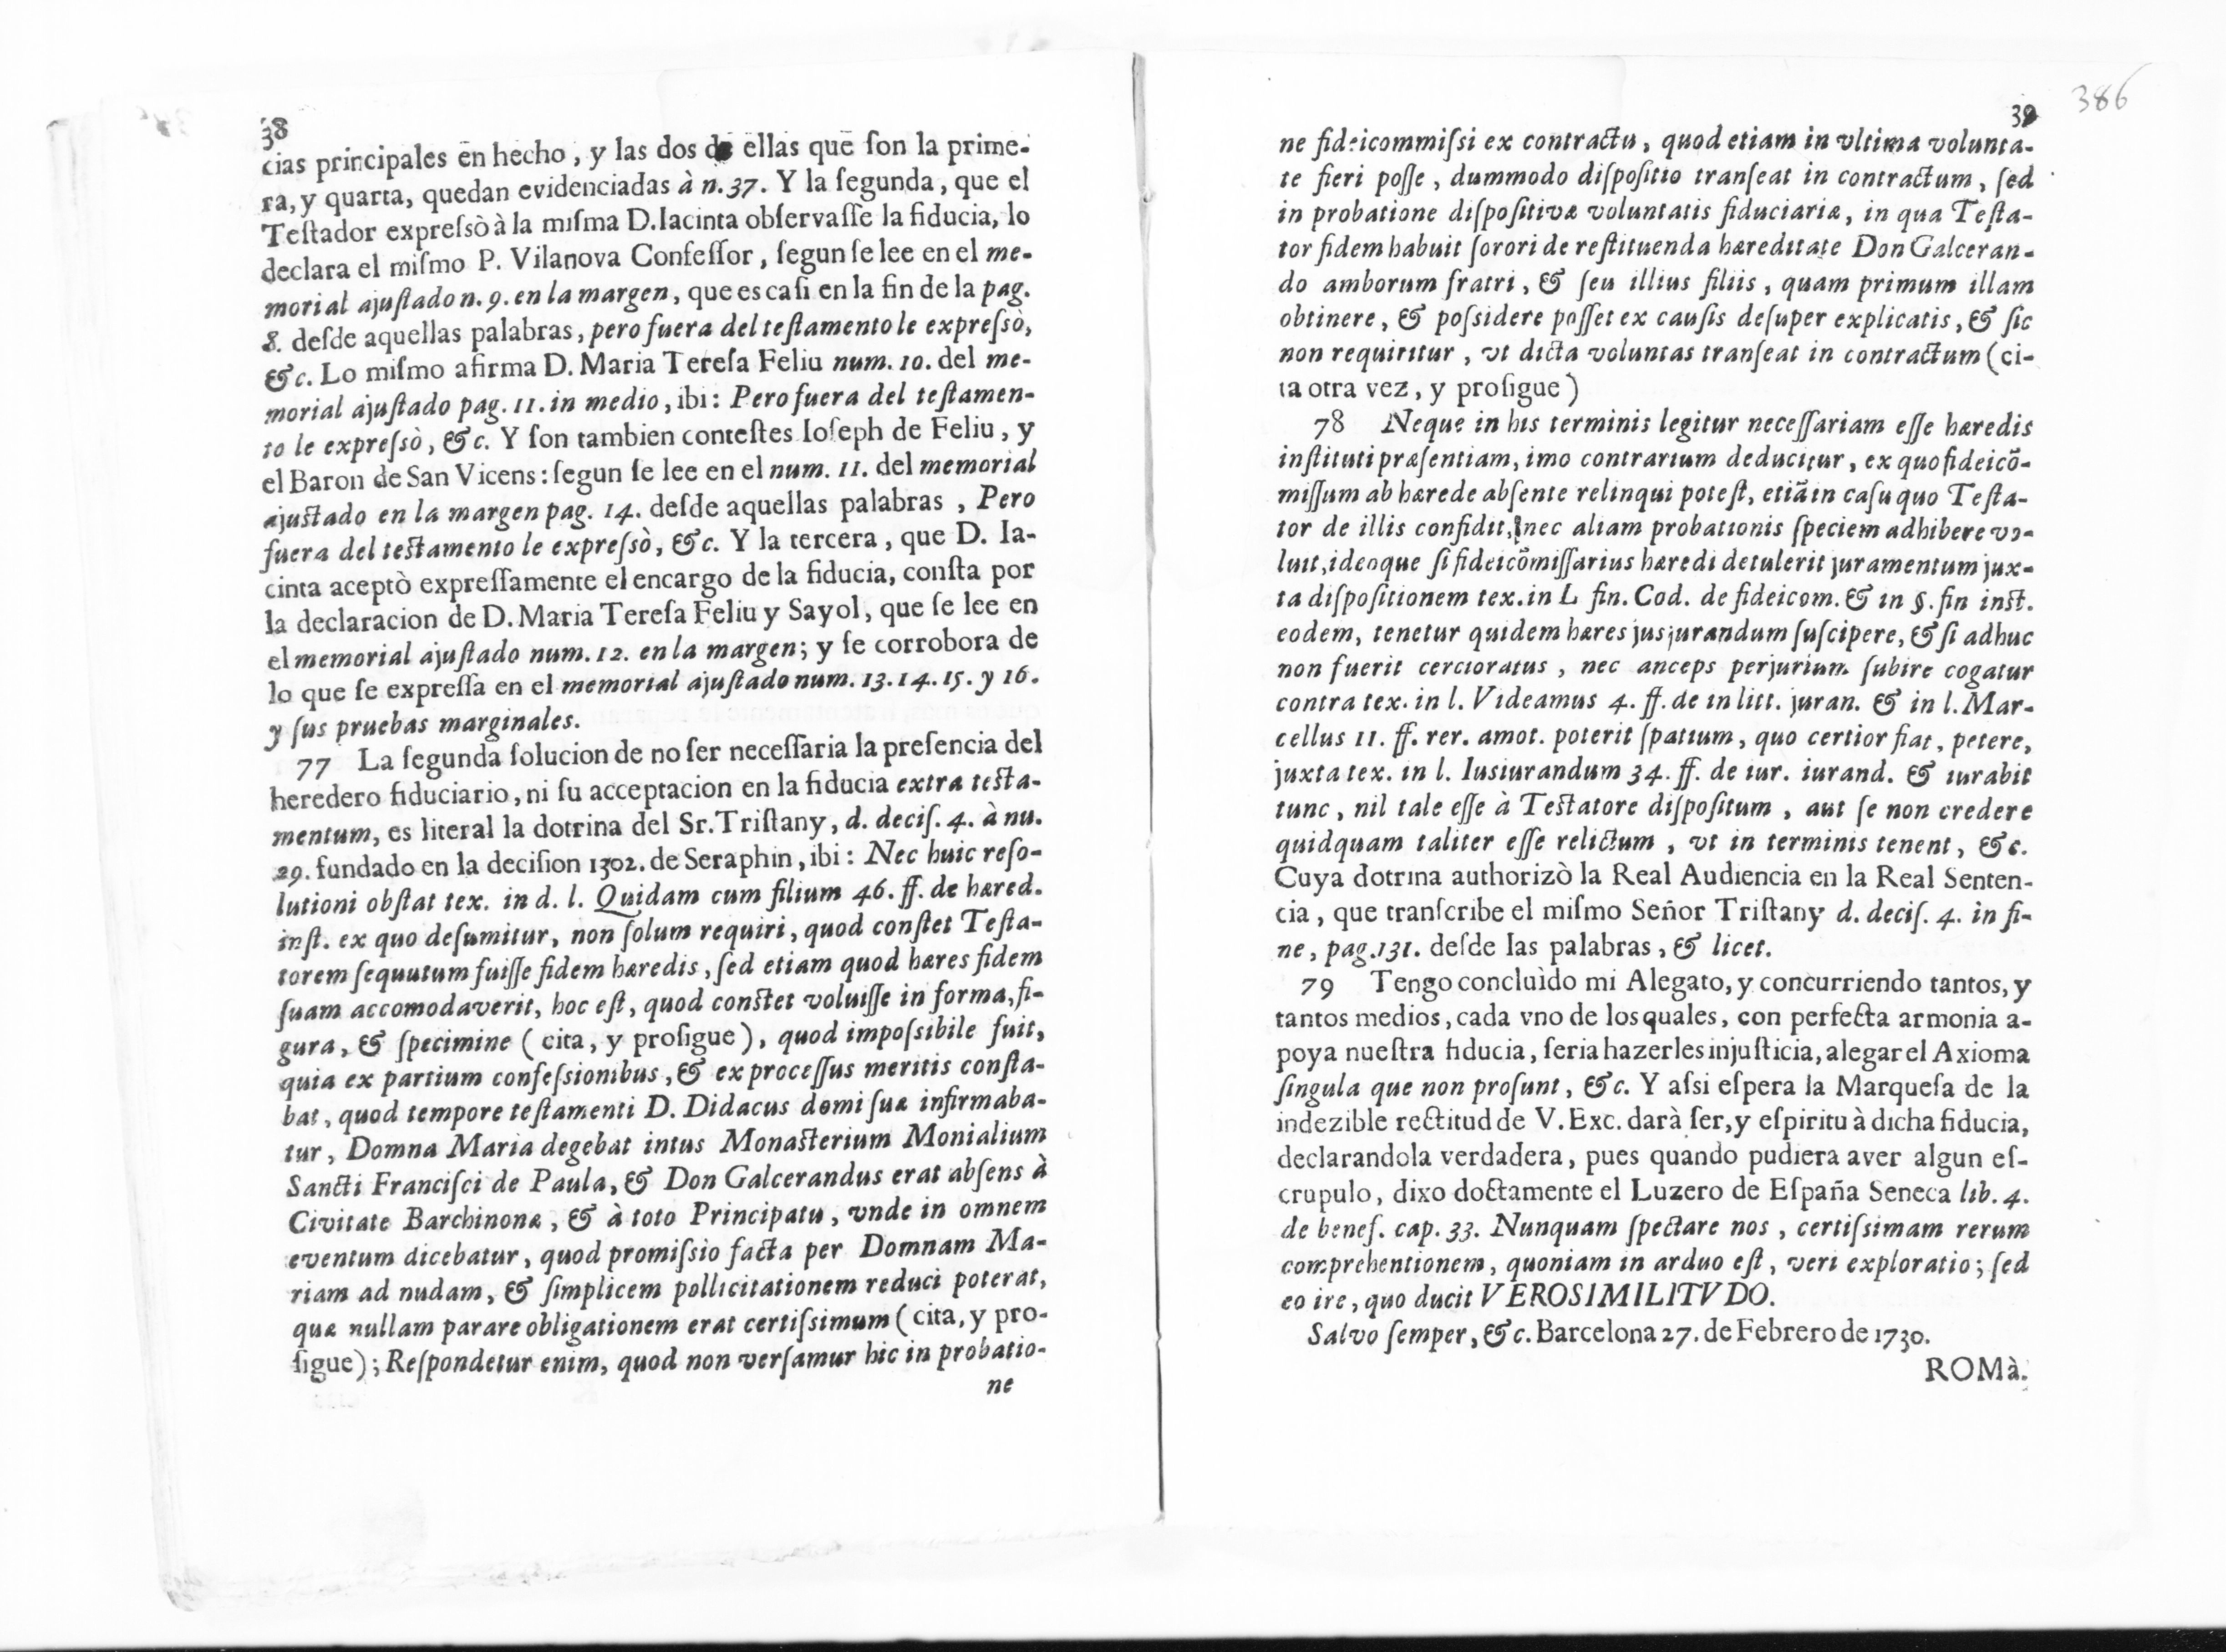 38
cias principales en hecho, y las dos de ellas que ſon la prime-
ra, y quarta, quedan evidenciadas à n. 37. Y la ſegunda, que el
Teſtador expreſsò à la miſma D. Iacinta obſervaſſe la fiducia, lo
declara el miſmo P. Vilanova Confeſſor, ſegun ſe lee en el me-
morial ajuſtado n. 9. en la margen, que es caſi en la fin de la pag.
8. deſde aquellas palabras, pero fuera del teſtamento le expreſsò,
&c. Lo miſmo afirma D. Maria Tereſa Feliu num. 10. del me-
morial ajuſtado pag. 11. in medio, ibi: Pero fuera del teſtamen-
to le expreſsò, &c. Y ſon tambien conteſtes Ioſeph de Feliu, y
el Baron de San Vicens: ſegun ſe lee en el num. 11. del memorial
ajuſtado en la margen pag. 14. deſde aquellas palabras, Pero
fuera del teſtamento le expreſsò, &c. Y la tercera, que D. Ia-
cinta aceptò expreſſamente el encargo de la fiducia, conſta por
la declaracion de D. Maria Tereſa Feliu y Sayol, que ſe lee en
el memorial ajuſtado num. 12. en la margen; y ſe corrobora de
lo que ſe expreſſa en el memorial ajuſtado num. 13. 14. 15. y 16.
y ſus pruebas marginales.
77 La ſegunda ſolucion de no ſer neceſſaria la preſencia del
heredero fiduciario, ni ſu acceptacion en la fiducia extra teſta-
mentum, es literal la dotrina del Sr. Triſtany, d. deciſ. 4. à nu.
29. fundado en la deciſion 1302. de Seraphin, ibi: Nec huic reſo-
lutioni obſtat tex. in d. l. Quidam cum filium 46. ff. de hæred.
inſt. ex quo deſumitur, non ſolum requiri, quod conſtet Teſta-
torem ſequutum fuiſſe fidem hæredis, ſed etiam quod hæres fidem
ſuam accomodaverit, hoc eſt, quod conſtet voluiſſe in forma, fi-
gura, & ſpecimine (cita, y proſigue), quod impoſsibile fuit,
quia ex partium confeſsionibus, & ex proceſſus meritis conſta-
bat, quod tempore teſtamenti D. Didacus domi ſuæ infirmaba-
tur, Domna Maria degebat intus Monaſterium Monialium
Sancti Franciſci de Paula, & Don Galcerandus erat abſens à
Civitate Barchinonæ, & à toto Principatu, vnde in omnem
eventum dicebatur, quod promiſsio facta per Domnam Ma-
riam ad nudam, & ſimplicem pollicitationem reduci poterat,
quæ nullam parare obligationem erat certiſsimum (cita, y pro-
ſigue); Reſpondetur enim, quod non verſamur hic in probatio-
ne
39
386
ne fideicommiſsi ex contractu, quod etiam in vltima volunta-
te fieri poſſe, dummodo diſpoſitio tranſeat in contractum, ſed
in probatione diſpoſitivæ voluntatis fiduciariæ, in qua Teſta-
tor fidem habuit ſorori de reſtituenda hæreditate Don Galceran-
do amborum fratri, & ſeu illius filiis, quam primum illam
obtinere, & poſsidere poſſet ex cauſis deſuper explicatis, & ſic
non requiritur, vt dicta voluntas tranſeat in contractum (ci-
ta otra vez, y proſigue)
78 Neque in his terminis legitur neceſſariam eſſe hæredis
inſtituti præſentiam, imo contrarium deducitur, ex quo fideicō-
miſſum ab hærede abſente relinqui poteſt, etiā in caſu quo Teſta-
tor de illis confidit, nec aliam probationis ſpeciem adhibere vo-
luit, ideoque ſi fideicōmiſſarius hæredi detulerit juramentum jux-
ta diſpoſitionem tex. in L fin. Cod. de fideicom. & in §. fin inſt.
eodem, tenetur quidem hæres jusjurandum ſuſcipere, & ſi adhuc
non fuerit cercioratus, nec anceps perjurium ſubire cogatur
contra tex. in l. Videamus 4. ff. de in litt. juran. & in l. Mar-
cellus 11. ff. rer. amot. poterit ſpatium, quo certior fiat, petere,
juxta tex. in l. Iusiurandum 34. ff. de iur. iurand. & iurabit
tunc, nil tale eſſe à Teſtatore diſpoſitum, aut ſe non credere
quidquam taliter eſſe relictum, vt in terminis tenent, &c.
Cuya dotrina authorizò la Real Audiencia en la Real Senten-
cia, que tranſcribe el miſmo Señor Triſtany d. deciſ. 4. in fi-
ne, pag. 131. deſde las palabras, & licet.
79 Tengo concluìdo mi Alegato, y concurriendo tantos, y
tantos medios, cada vno de los quales, con perfecta armonia a-
poya nueſtra fiducia, ſeria hazerles injuſticia, alegar el Axioma
ſingula que non proſunt, &c. Y aſsi eſpera la Marqueſa de la
indezible rectitud de V. Exc. darà ſer, y eſpiritu à dicha fiducia,
declarandola verdadera, pues quando pudiera aver algun eſ-
crupulo, dixo doctamente el Luzero de Eſpaña Seneca lib. 4.
de benef. cap. 33. Nunquam ſpectare nos, certiſsimam rerum
comprehentionem, quoniam in arduo eſt, veri exploratio; ſed
eo ire, quo ducit VEROSIMILITVDO.
Salvo ſemper, &c. Barcelona 27. de Febrero de 1730.
ROMà.